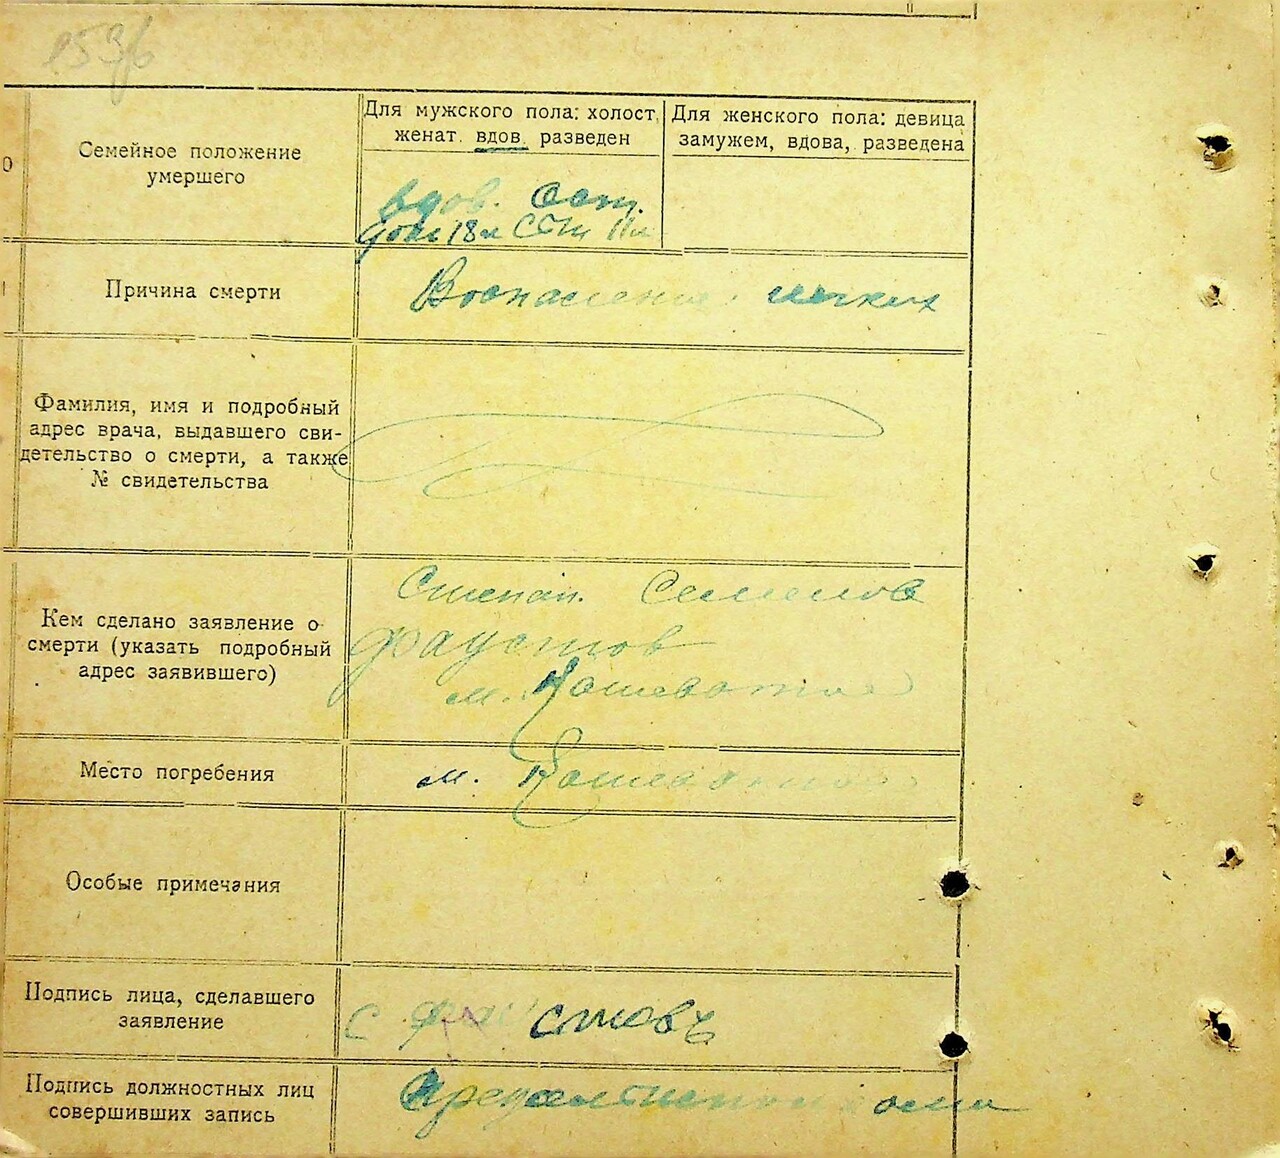 Семейное положение
умершего
Для мужского пола: холост,
женат. вдов. разведен
Для женского пола: девица
замужем, вдова, разведена
вдов. Ост.
дочь 18 л 11 л
Причина смерти
Воспаление легких
Фамилия, имя и подробный
адрес врача, выдавшего сви-
детельство о смерти, а также
№ свидетельства
Кем сделано заявление о
смерти (указать подробный
адрес заявившего)
Степан. Семенов
Фаустов
м.
Место погребения
м.
Особые примечания
Подпись лица, сделавшего
заявление
С Фаустовъ
Подпись должностных лиц
совершивших запись